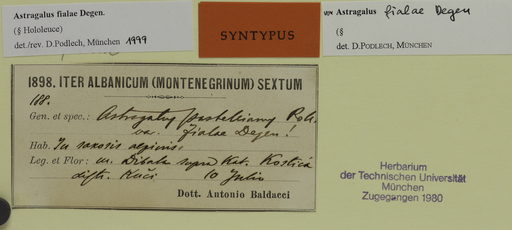 Astragalus fialae Degen.
(§ Hololeuce)
det./rev. D.Podlech, München 1999
SYNTYPUS
Astragalus fialae Degen
(§
det. D.PODLECH, MÜNCHEN
1898. ITER ALBANICUM (MONTENEGRINUM) SEXTUM
188.
Gen. et spec.: Astragalus
var. fialae Degen!
Hab. In saxosis alpinis
Leg. et Flor: m. Dibala supra Kat. Kostica
distr. Kuči 10 Julio
Dott. Antonio Baldacci
Herbarium
der Technischen Universität
München
Zugegangen 1980